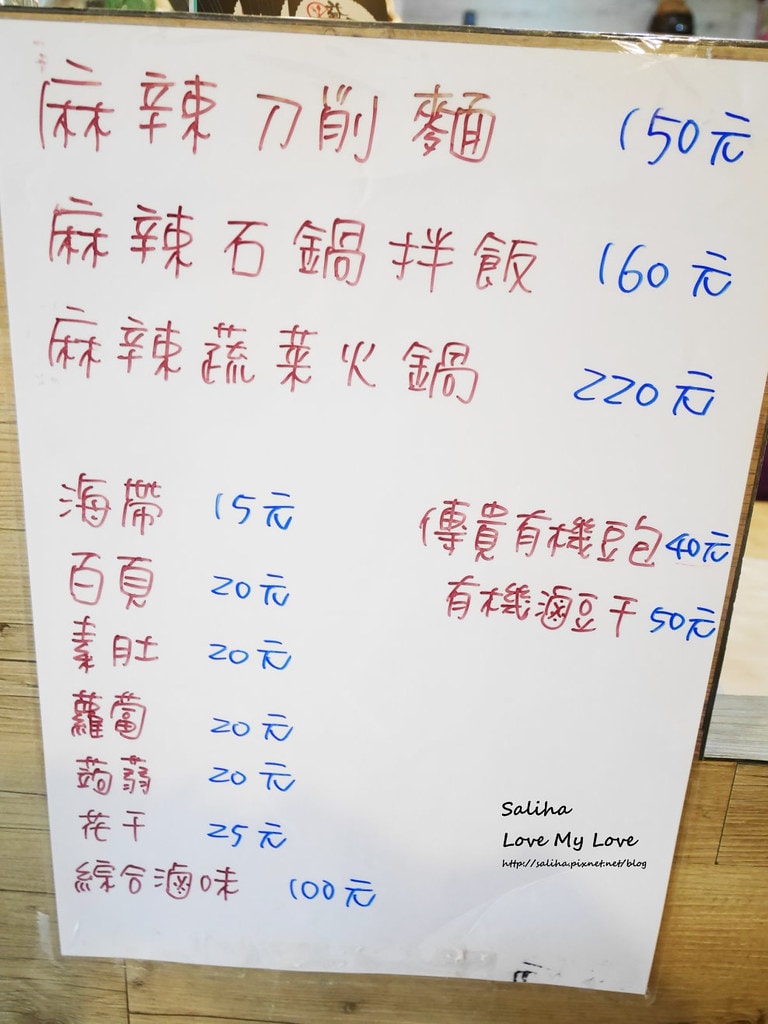 麻辣刀削麵 150元
麻辣石鍋拌飯 160元
麻辣蔬菜火鍋 220元
海帶 15元
百頁 20元
素肚 20元
蘿蔔 20元
蒟蒻 20元
花干 25元
綜合滷味 100元
傳貴有機豆包40元
有機滷豆干50元
Saliha
Love My Love
http://saliha.pixnet.net/blog